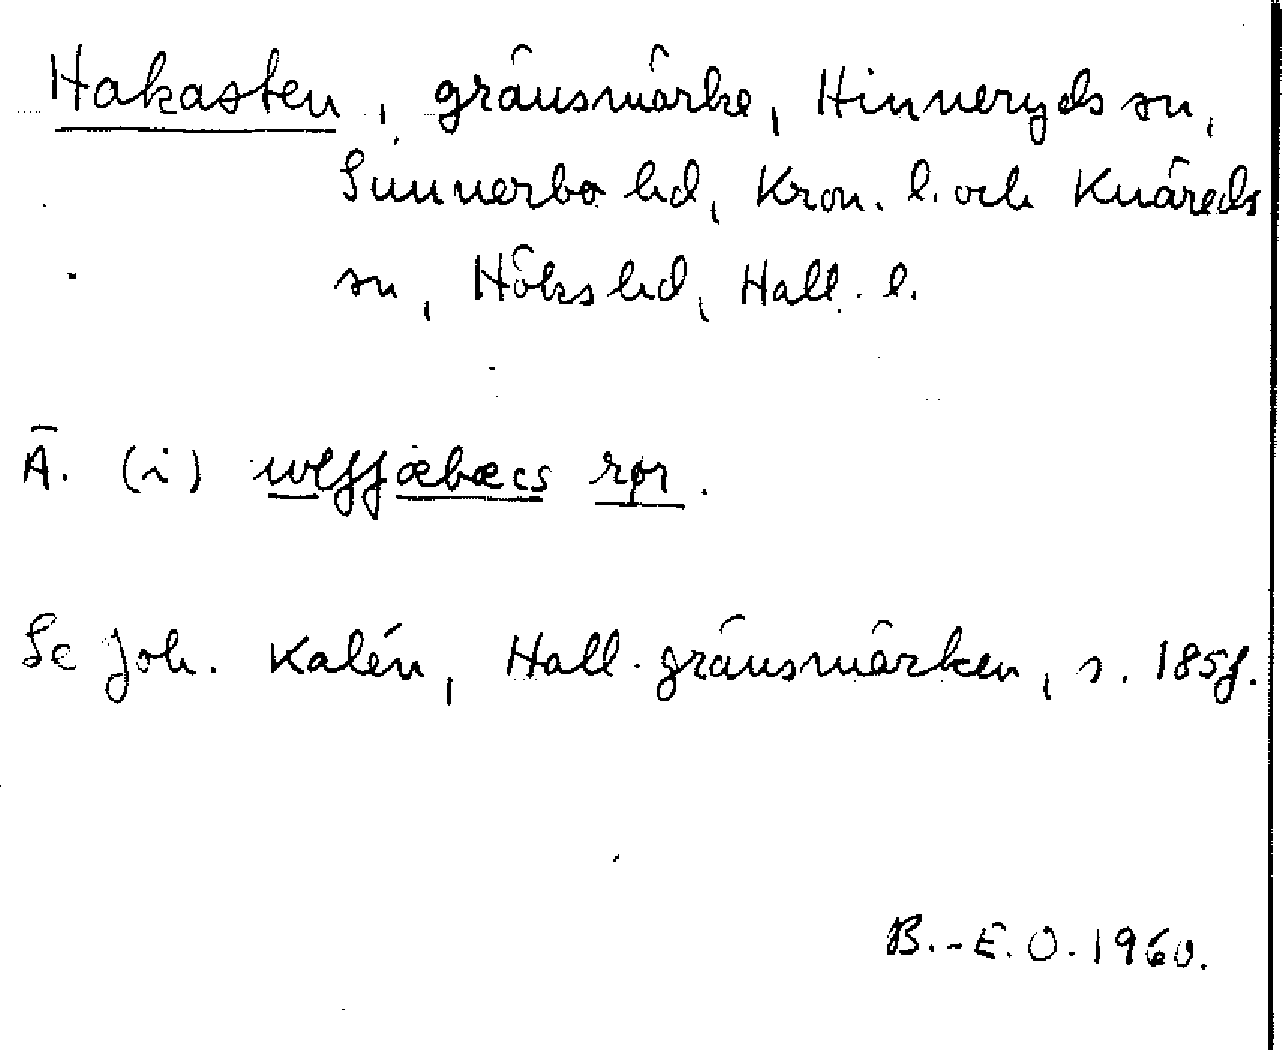 Hakasten, gränsmärke, Hinneryds sn,
Sunnerbo hd, Kron. l. och Knäreds
sn, Höks hd, Hall. l.
Ä. (i) rör.
Se Joh. Kalén, Hall. gränsmärken, s. 185f.
B.-E.O. 1960.